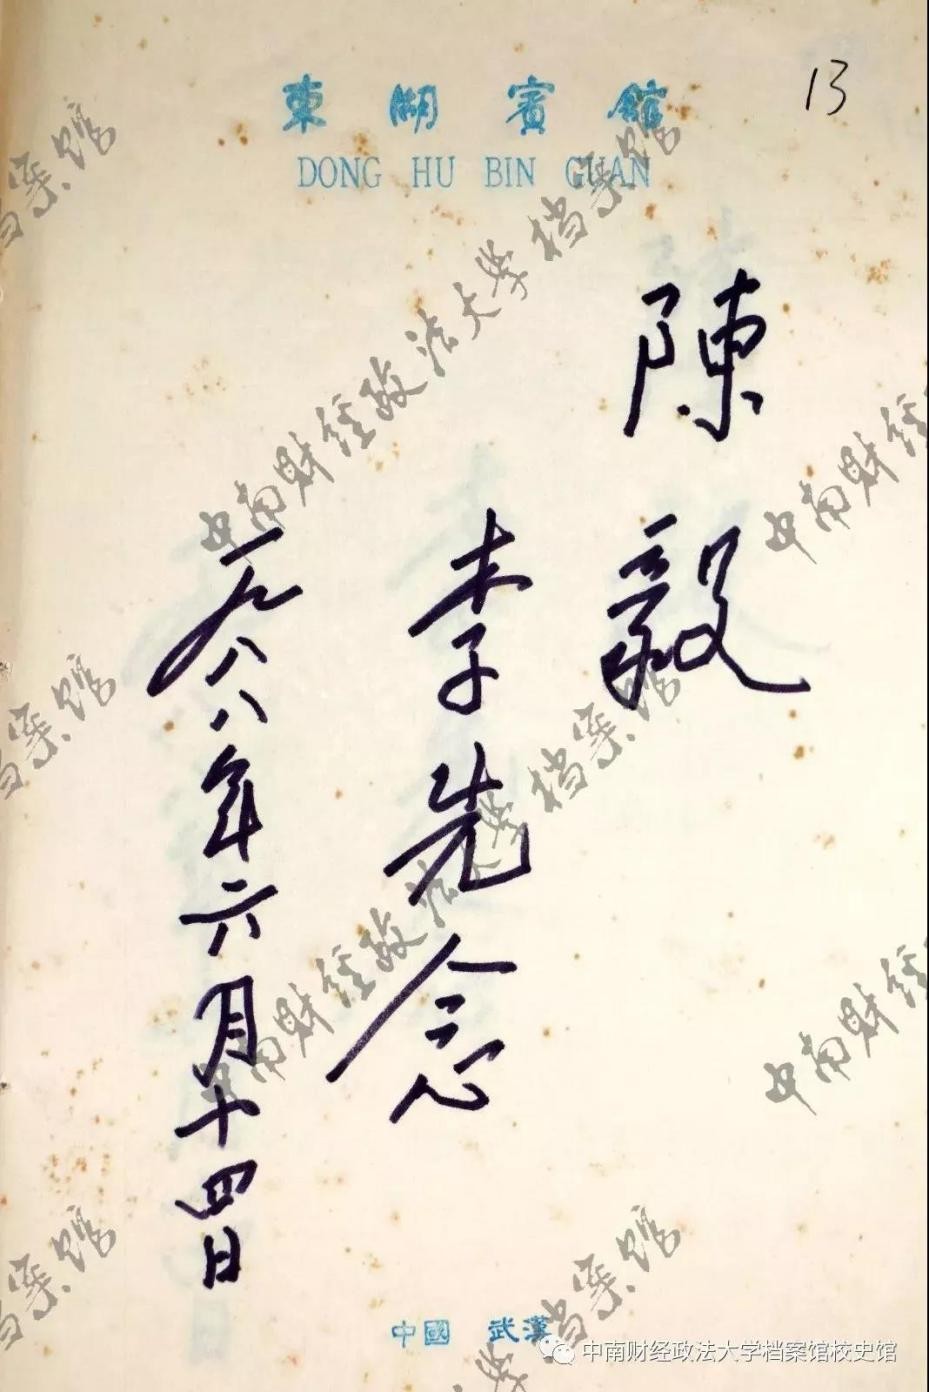 13
東湖賓館
DONG HU BIN GUAN
陳毅
李先念
一九八八年六月十四日
中國 武漢
中南财经政法大学档案馆
中南财经政法大学档案馆校史馆